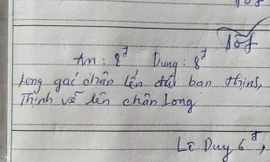 An : 8đ Dung : 8đ
Long gác chân lên đùi bạn Thịnh,
Thịnh vẽ lên chân Long
Lê Duy 6đ,